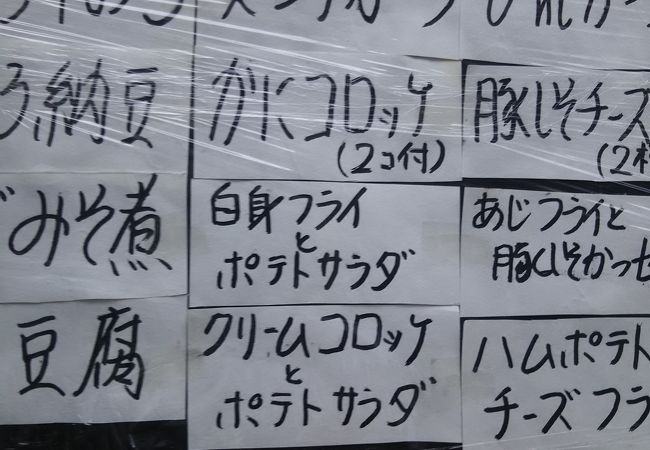 ろ納豆
みそ煮
豆腐
かにコロッケ
(2コ付)
白身フライ
と
ポテトサラダ
クリームコロッケ
と
ポテトサラダ
豚しそチーズ
(2枚
あじフライと
豚しそかつ
ハムポテト
チーズフラ